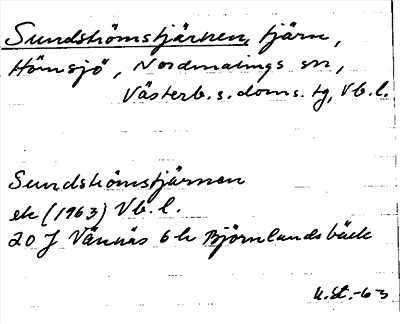 Sundströmstjärnen, tjärn,
Hörnsjö, Nordmalings sn,
Västerb. s. doms. tg, Vb. l.
Sundströmstjärnen
ek (1963) Vb. l.
20 J Vännäs 6 h Björnlandsbäck
U. St. -63